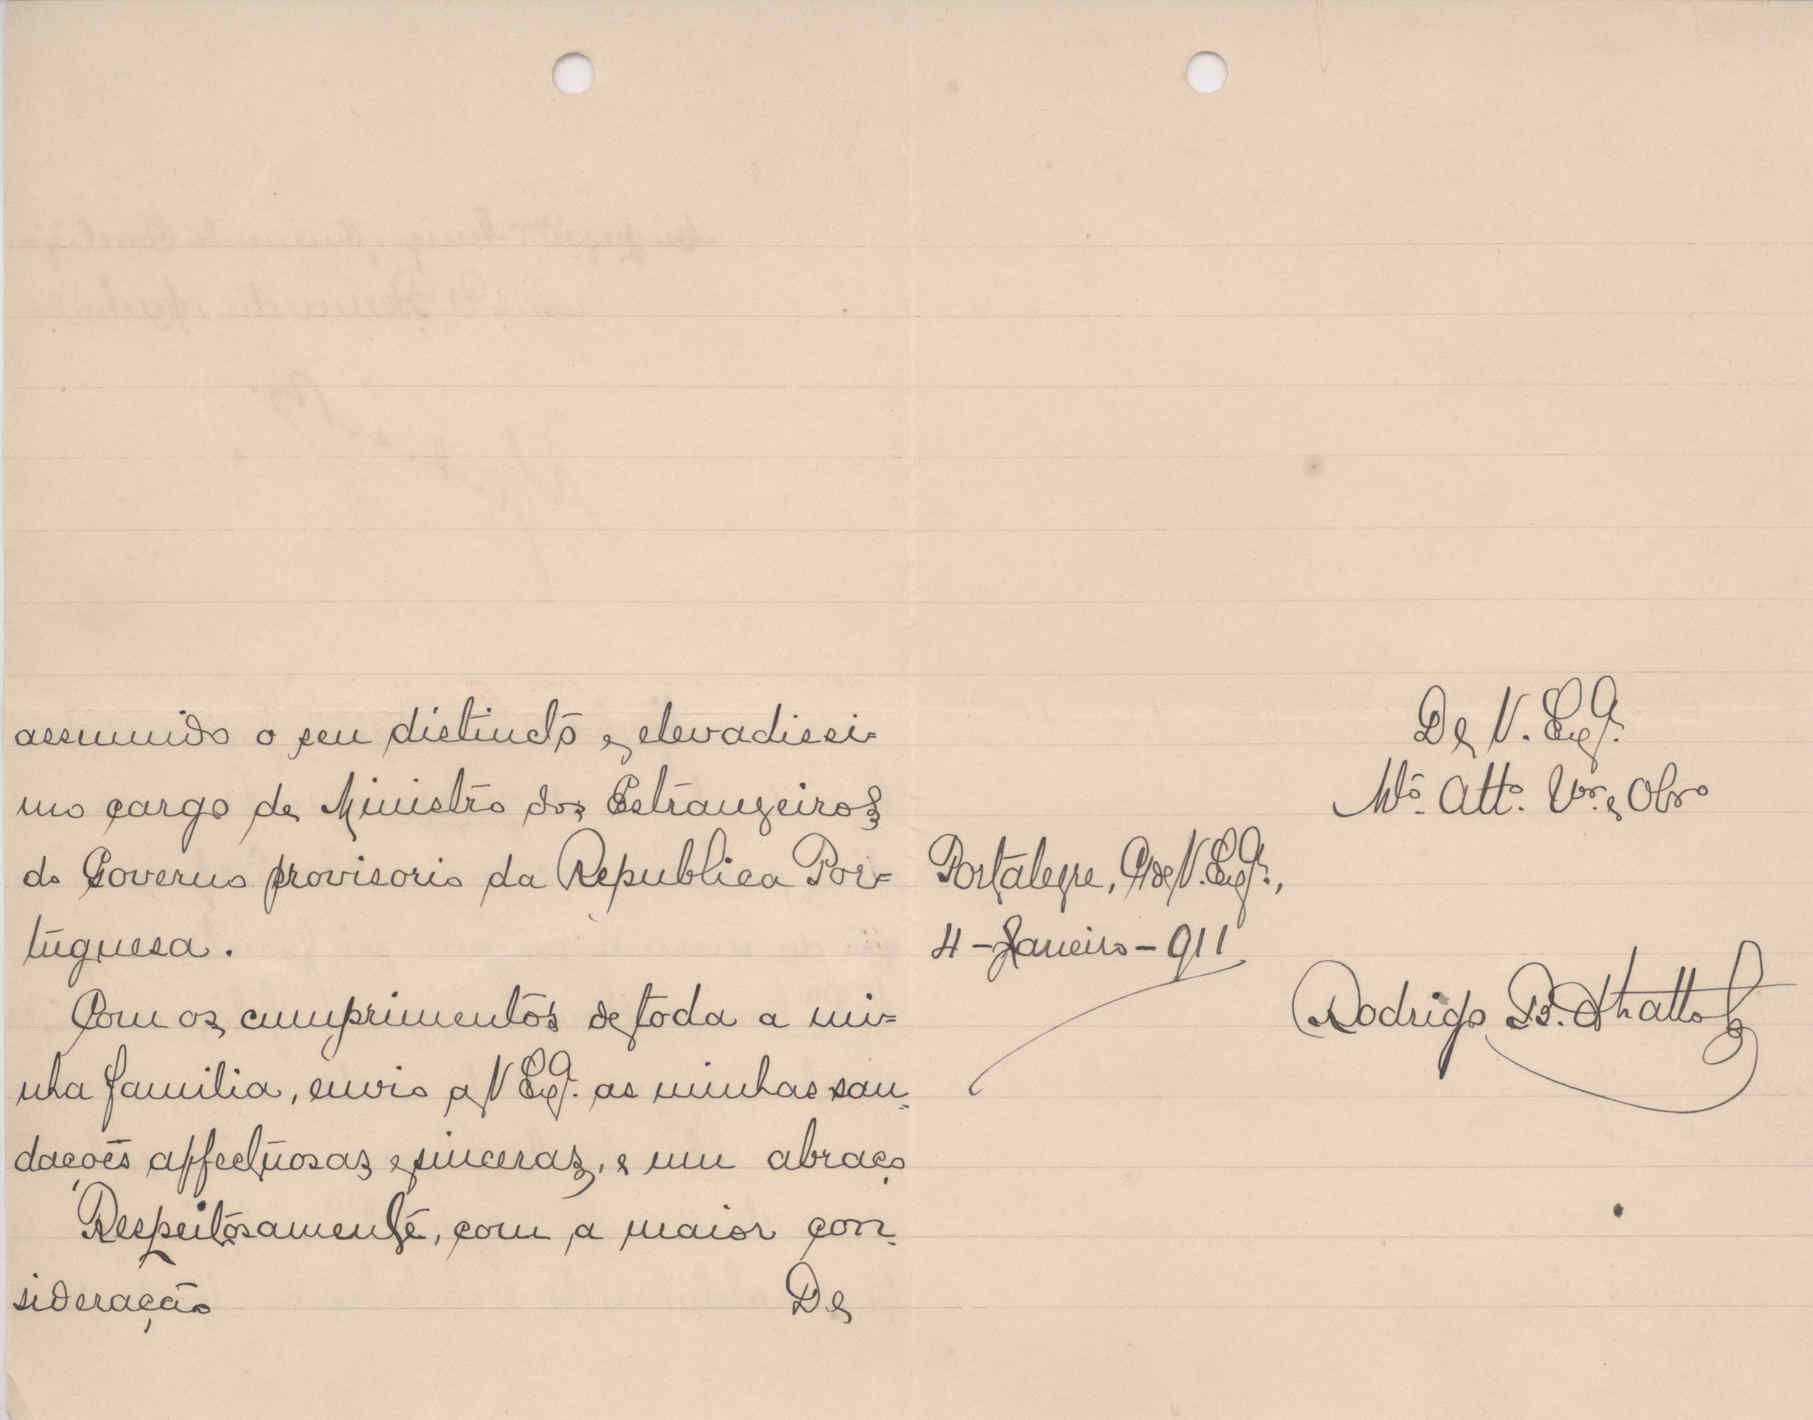 assumido o seu distincto e elevadissi-
mo cargo de Ministro dos Estrangeiros
do Governo provisorio da Republica Por=
tuguesa.
Com os cumprimentos de toda a mi=
nha familia, envio a V Exª. as minhas sau-
dações affectuosas e sinceras, e um abraço
Respeitosamente, com a maior con-
sideração De
De V. Exª.
Mtº. Attº. Vor. e Obro
Portalegre, C/de V. Exª.,
4-Janeiro-911
Rodrigo B.